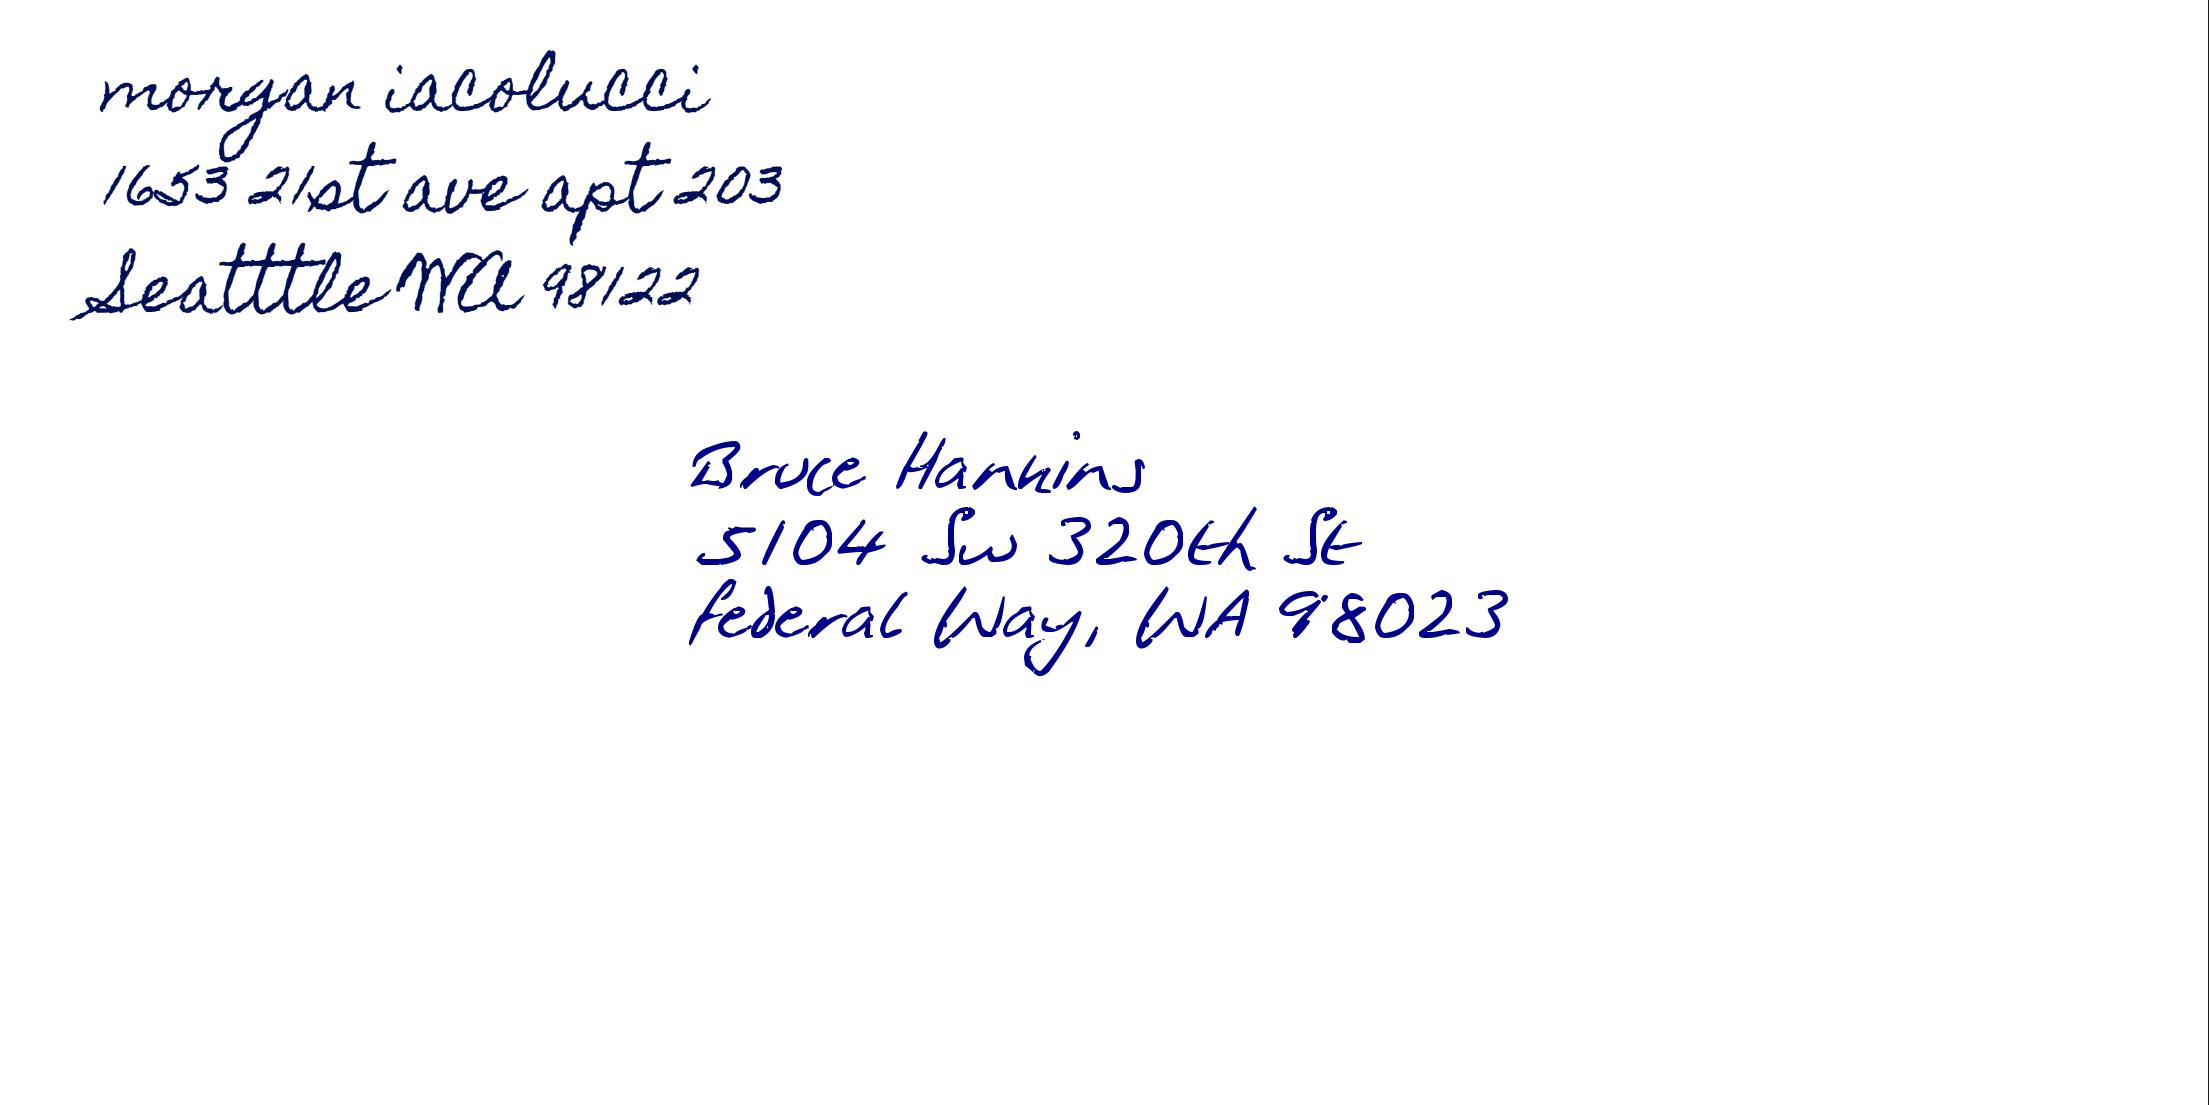 morgan iacolucci
1653 21st ave apt 203
Seatttle WA 98122
Bruce Hankins
5104 SW 320th St
federal Way, WA 98023